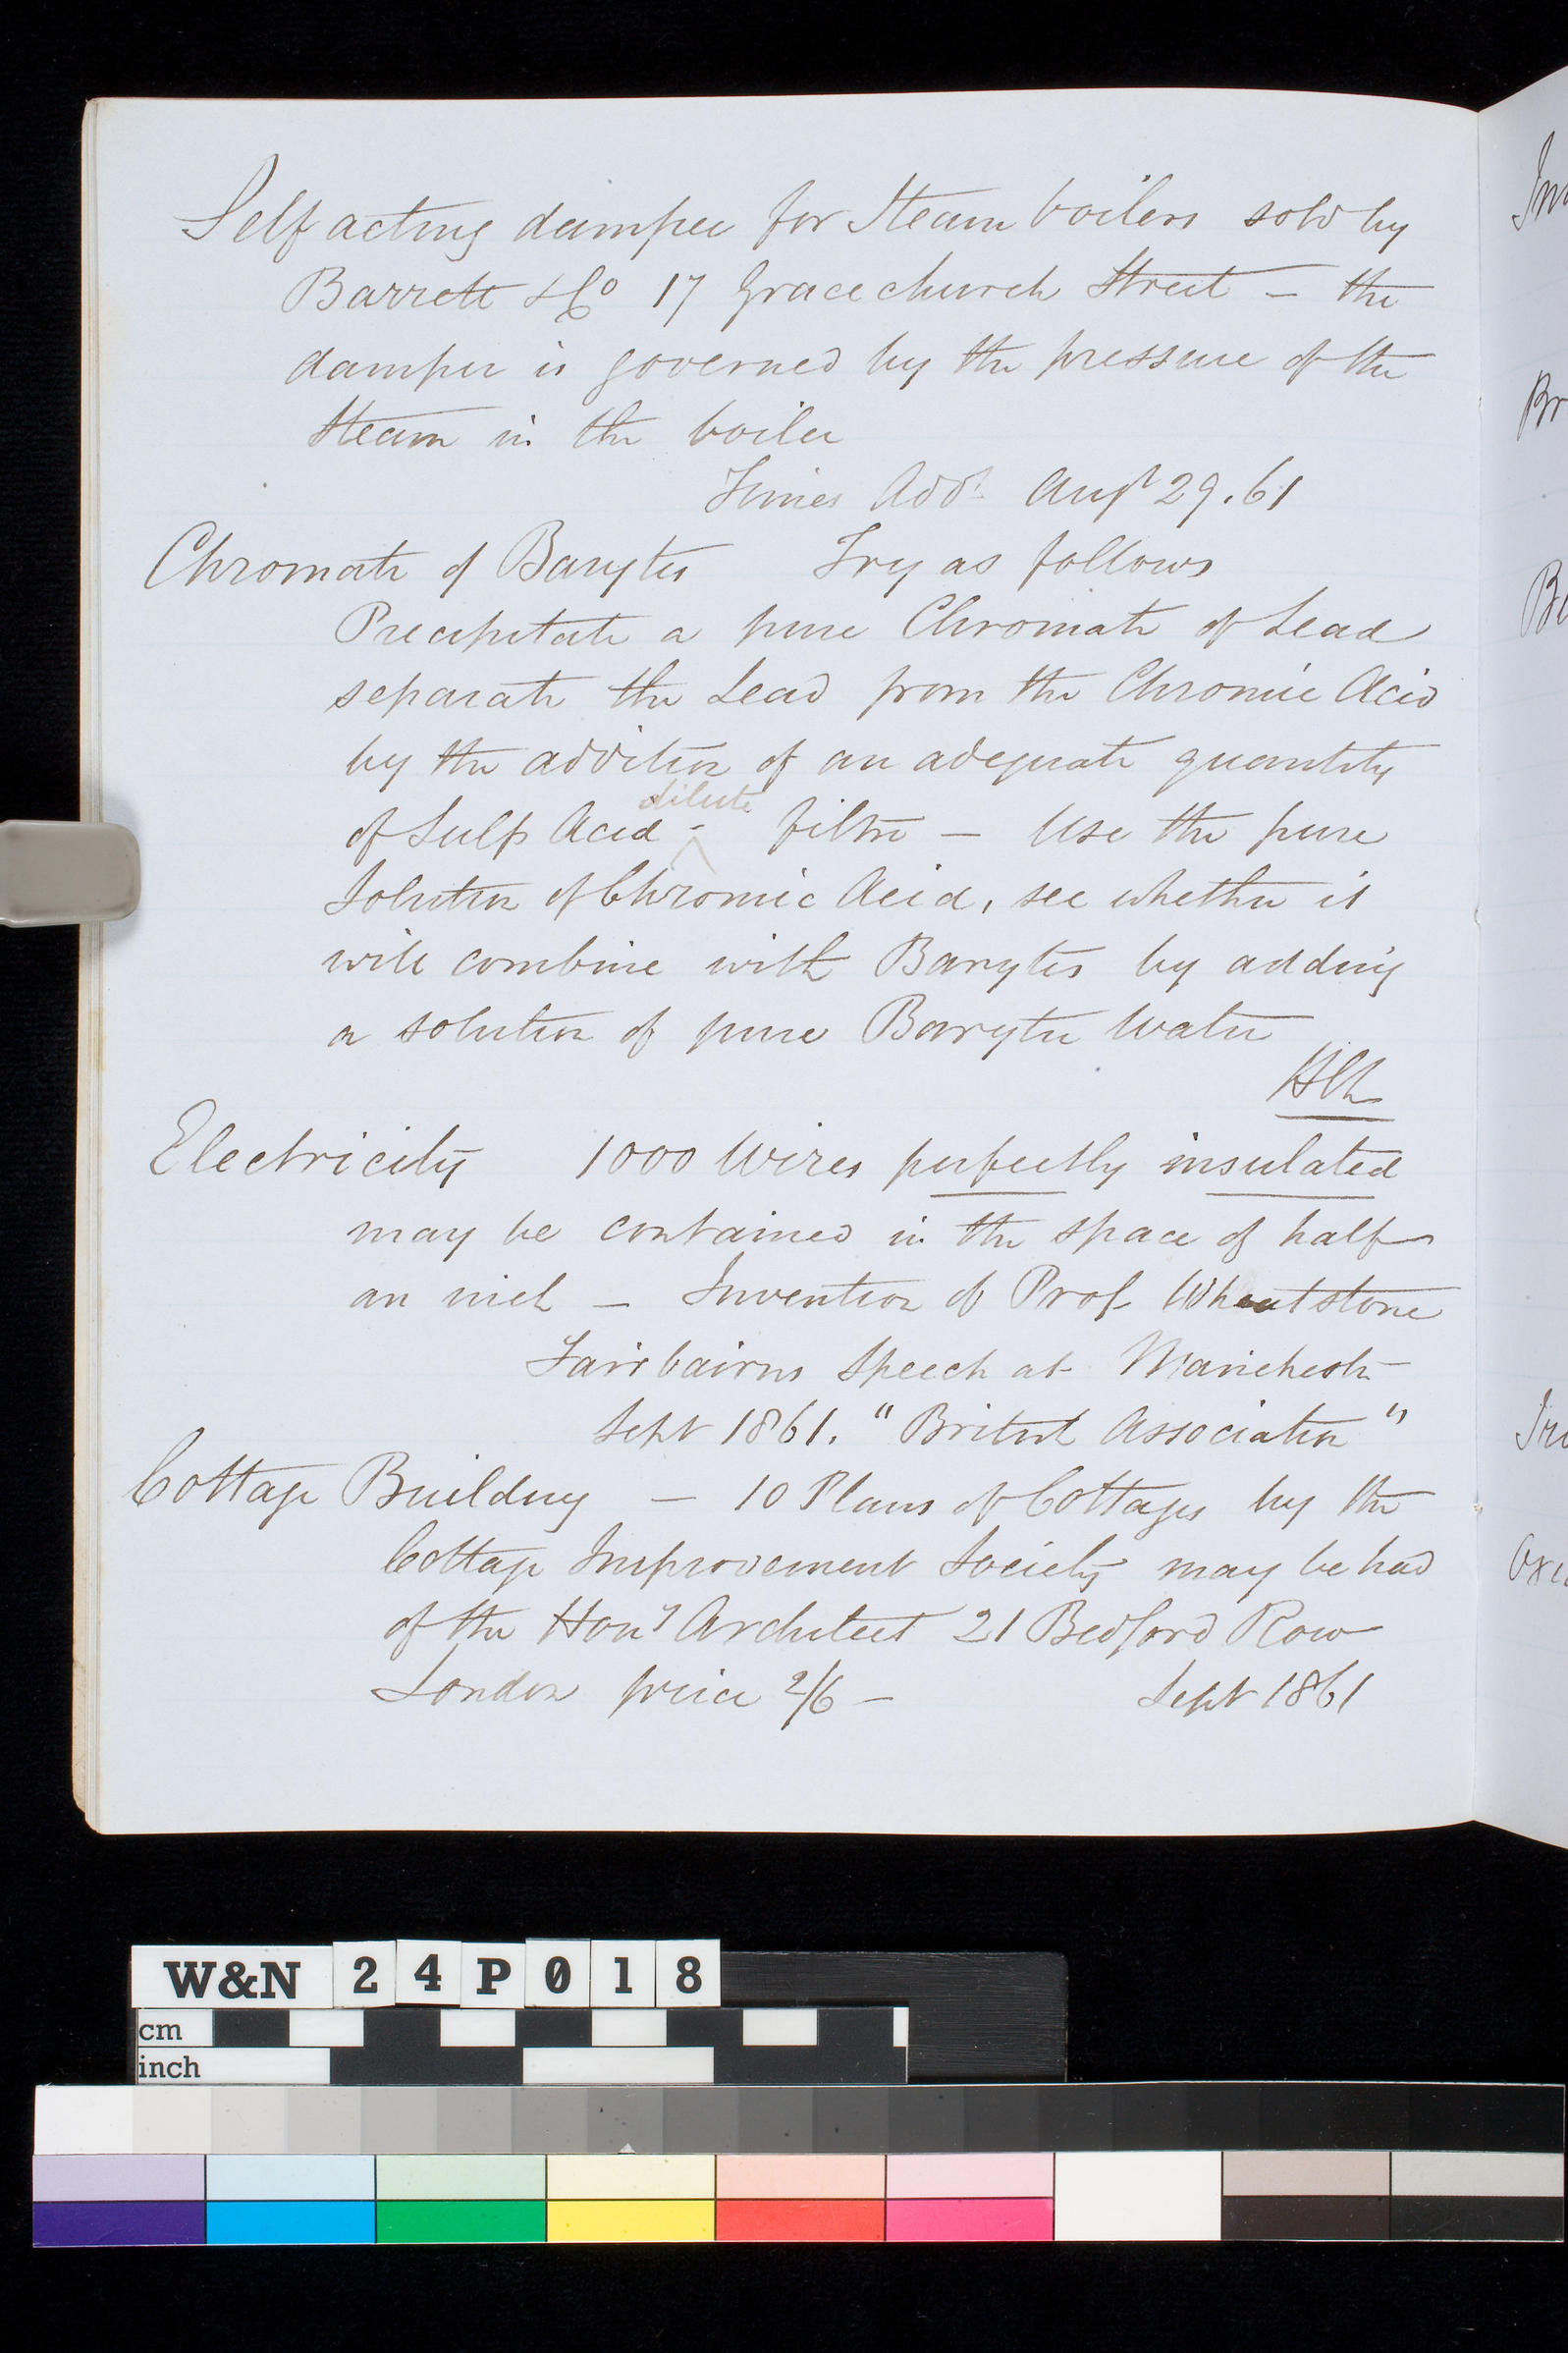 Self acting damper for Steam boilers sold by
Barrett & Co 17 Gracechurch Street - the
damper is governed by the pressure of the
Steam in the boiler
Times Adt. Augt 29.61
Chromate of Barytes Try as follows
Precipitate a pure Chromate of Lead
separate the Lead from the Chromic Acid
by the addition of an adequate quantity
dilute
of Sulp Acid - filtre - Use the pure
Solution of Chromic Acid, see whether it
will combine with Barytes by adding
a solution of pure Barytes Water
Electricity 1000 Wires perfectly insulated
may be contained in the space of half
an inch - Invention of Prof Wheatstone
Fairbairns Speech at Manchester
Sept 1861. "British Association"
Cottage Building - 10 Plans of Cottages by the
Cottage Improvement Society may be had
of the Hony Architect 21 Bedford Row
London price 2/6 - Sept 1861
Br
W&N 24P018
cm
inch